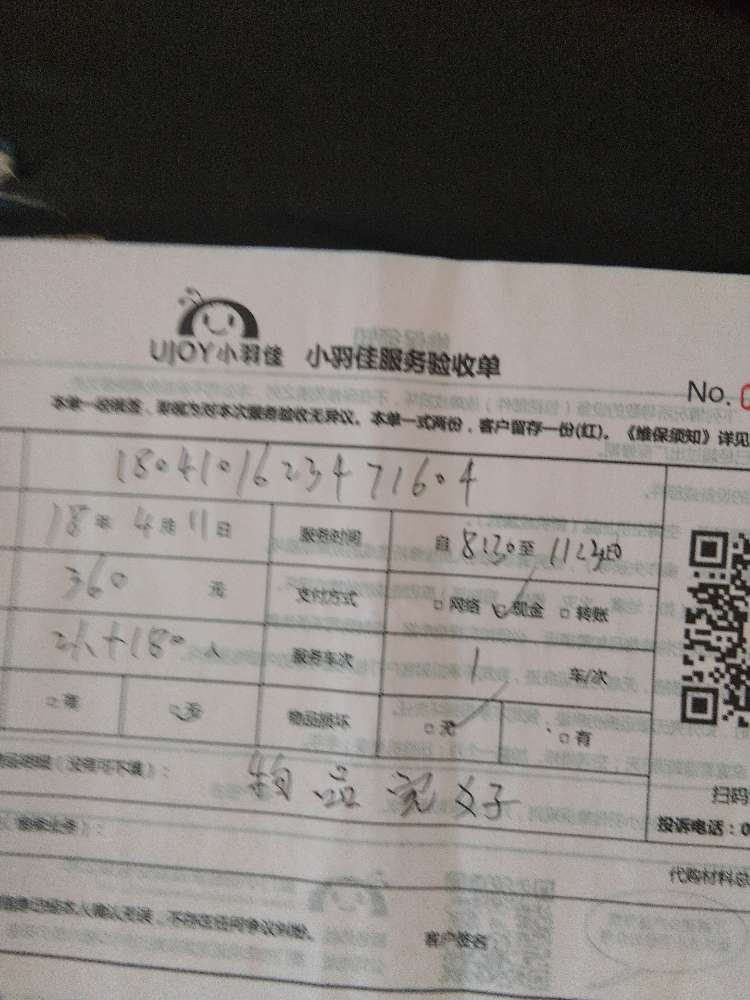 UJOY小羽佳 小羽佳服务验收单
No.0
本单一经填签,即视为对本次服务验收无异议。本单一式两份,客户留存一份(红)。《维保须知》详见
1804101623471604
18年4月11日 服务时间 自8:30至11:30
360元 支付方式 □网络 □现金 □转账
2人+180人 服务车次 1 车/次
□有 □无 物品损坏 □无 □有
物品明细(没有可不填): 物品完好
扫码
投诉电话:0
代购材料总
客户签名